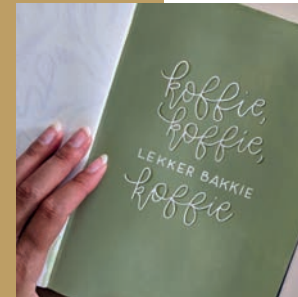 koffie,
koffie,
LEKKER BAKKIE
koffie